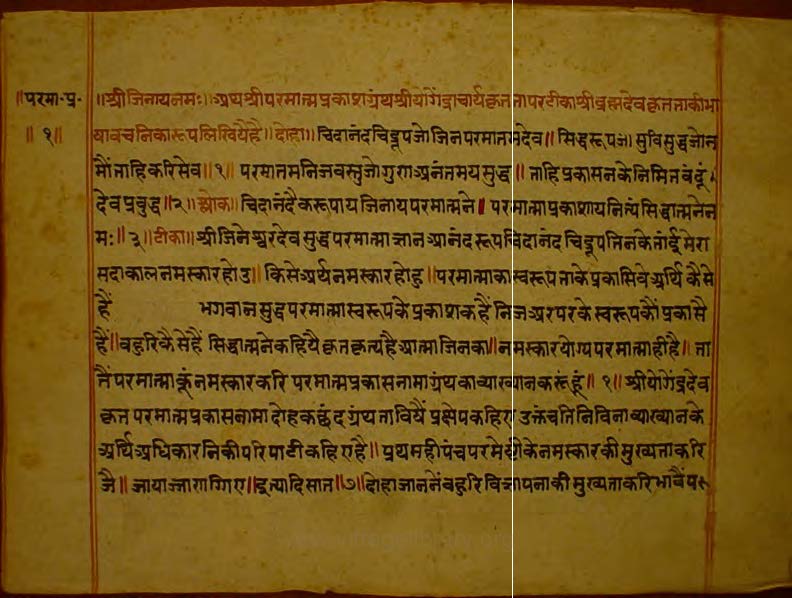 ॥परमा-प्र- ॥श्रीजिनायनमः॥अथश्रीपरमात्मप्रकाशग्रंथश्रीयोगेंद्राचार्यकृततापरटीकाश्रीब्रह्मदेवकृतताकीभा
॥१॥ षावचनिकारूपलिखियैहै॥दोहा॥चिदानंदचिद्रूपजोजिनपरमातमदेव॥सिद्धरूपजोसुविसुद्धजोन
मौंताहिकरिसेव॥१॥परमातमनिजवस्तुजोगुराअनंतमयसुद्ध॥ताहिप्रकासनकेनिमितवंदूं
देवप्रबुद्ध॥२॥श्लोक॥चिदानंदैकरूपायजिनायपरमात्मने॥परमात्माप्रकाशायनित्यंसिद्धात्मनेन
मः॥३॥टीका॥श्रीजिनेश्वरदेवसुद्धपरमात्माज्ञानआनंदरूपचिदानंदचिद्रूपतिनकेतांईमेरा
सदाकालनमस्कारहोउ॥किसेअर्थनमस्कारहोहु॥परमात्माकास्वरूपताकेप्रकासिवेअर्थिकैसे
हैं भगवानसुद्धपरमात्मास्वरूपकेप्रकाशकहैंनिजअरपरकेस्वरूपकौंप्रकासै
हैं॥बहुरिकैसेहैंसिद्धात्मनेकहियैकृतकृत्यहैआत्माजिनका॥नमस्कारयोग्यपरमात्माहीहै॥ता
तैंपरमात्माकूंनमस्कारकरिपरमात्मप्रकासनामाग्रंथकाव्याख्यानकरूंहूं॥१॥श्रीयोगेंद्रदेव
कृतपरमात्मप्रकासनामादोहकछंदग्रंथताविषैंप्रक्षेपककहिएउक्तंचतिनिविनाव्याख्यानके
अर्थिअधिकारनिकीपरिपाटीकहिएहै॥प्रथमहीपंचपरमेष्टीकेनमस्कारकीमुख्यताकरि
जै॥जायाज्जाराग्गिए॥इत्यादिसात॥७॥दोहाजाननेंबहुरिविज्ञापनाकीमुख्यताकरिभावैंपस